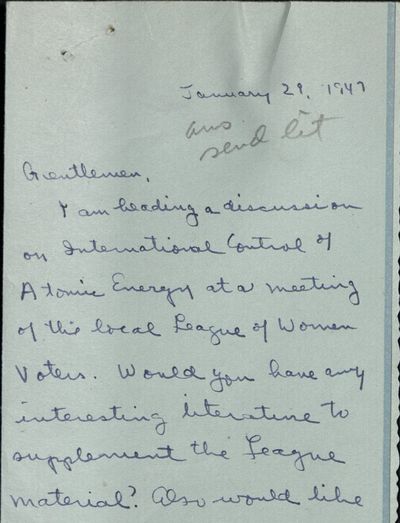 January 29, 1947
ans.
send lit
Gentlemen,
I am leading a discussion
on International Control of
Atomic Energy at a meeting
of the local League of Women
Voters. Would you have any
interesting literature to
supplement the League
material? Also would like